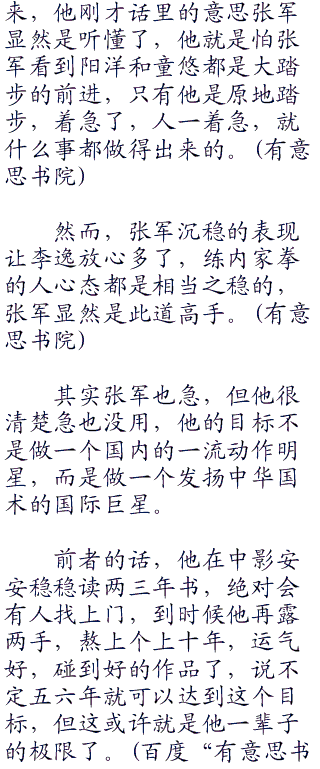 来，他刚才话里的意思张军
显然是听懂了，他就是怕张
军看到阳洋和童悠都是大踏
步的前进，只有他是原地踏
步，着急了，人一着急，就
什么事都做得出来的。(有意
思书院)
然而，张军沉稳的表现
让李逸放心多了，练内家拳
的人心态都是相当之稳的，
张军显然是此道高手。(有意
思书院)
其实张军也急，但他很
清楚急也没用，他的目标不
是做一个国内的一流动作明
星，而是做一个发扬中华国
术的国际巨星。
前者的话，他在中影安
安稳稳读两三年书，绝对会
有人找上门，到时候他再露
两手，熬上个上十年，运气
好，碰到好的作品了，说不
定五六年就可以达到这个目
标，但这或许就是他一辈子
的极限了。(百度“有意思书